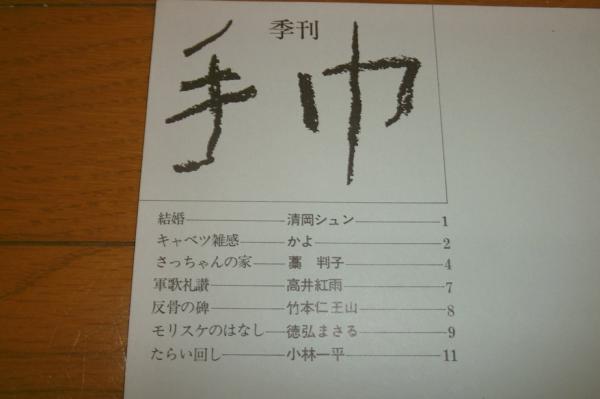 季刊
手巾
結婚――清岡シュン――1
キャベツ雑感――かよ――2
さっちゃんの家――藁 判子――4
軍歌礼讃――高井紅雨――7
反骨の碑――竹本仁王山――8
モリスケのはなし――徳弘まさる――9
たらい回し――小林一平――11